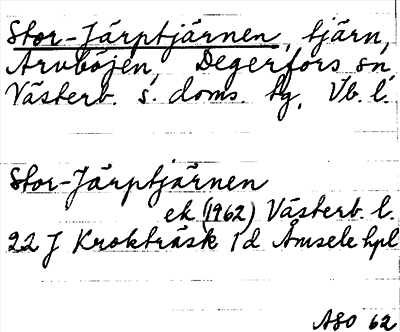 Stor-Järptjärnen, tjärn,
Arvböjen, Degerfors sn,
Västerb. s. doms. tg, Vb. l.
Stor-Järptjärnen
ek (1962) Västerb. l.
22 J Krokträsk 1 d Åmsele hpl
ASO 62